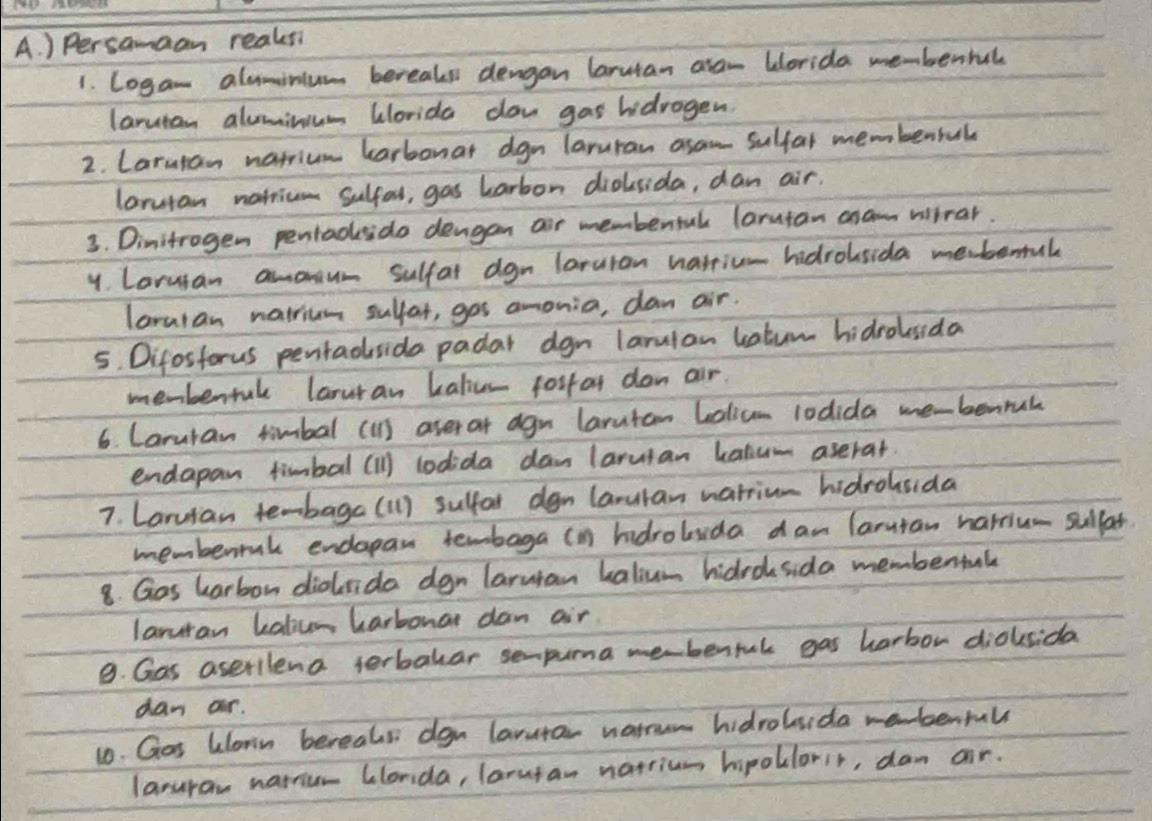 A.) Persamaan reaksi
1. Logam aluminium bereaksi dengan larutan asam klorida membentuk
larutan aluminium klorida dan gas hidrogen.
2. Larutan natrium karbonat dgn larutan asam sulfat membentuk
larutan natrium sulfat, gas karbon dioksida, dan air.
3. Dinitrogen pentaoksida dengan air membentuk larutan asam nitrat.
4. Larutan amonium sulfat dgn larutan natrium hidroksida membentuk
larutan natrium sulfat, gas amonia, dan air.
5. Difosforus pentaoksida padat dgn larutan kalium hidroksida
membentuk larutan kalium fosfat dan air.
6. Larutan timbal (II) asetat dgn larutan kalium iodida membentuk
endapan timbal (II) iodida dan larutan kalium asetat.
7. Larutan tembaga (II) sulfat dgn larutan natrium hidroksida
membentuk endapan tembaga (II) hidroksida dan larutan natrium sulfat.
8. Gas karbon dioksida dgn larutan kalium hidroksida membentuk
larutan kalium karbonat dan air.
9. Gas asetilena terbakar sempurna membentuk gas karbon dioksida
dan air.
10. Gas klorin bereaksi dgn larutan natrium hidroksida membentuk
larutan natrium klorida, larutan natrium hipoklorit, dan air.